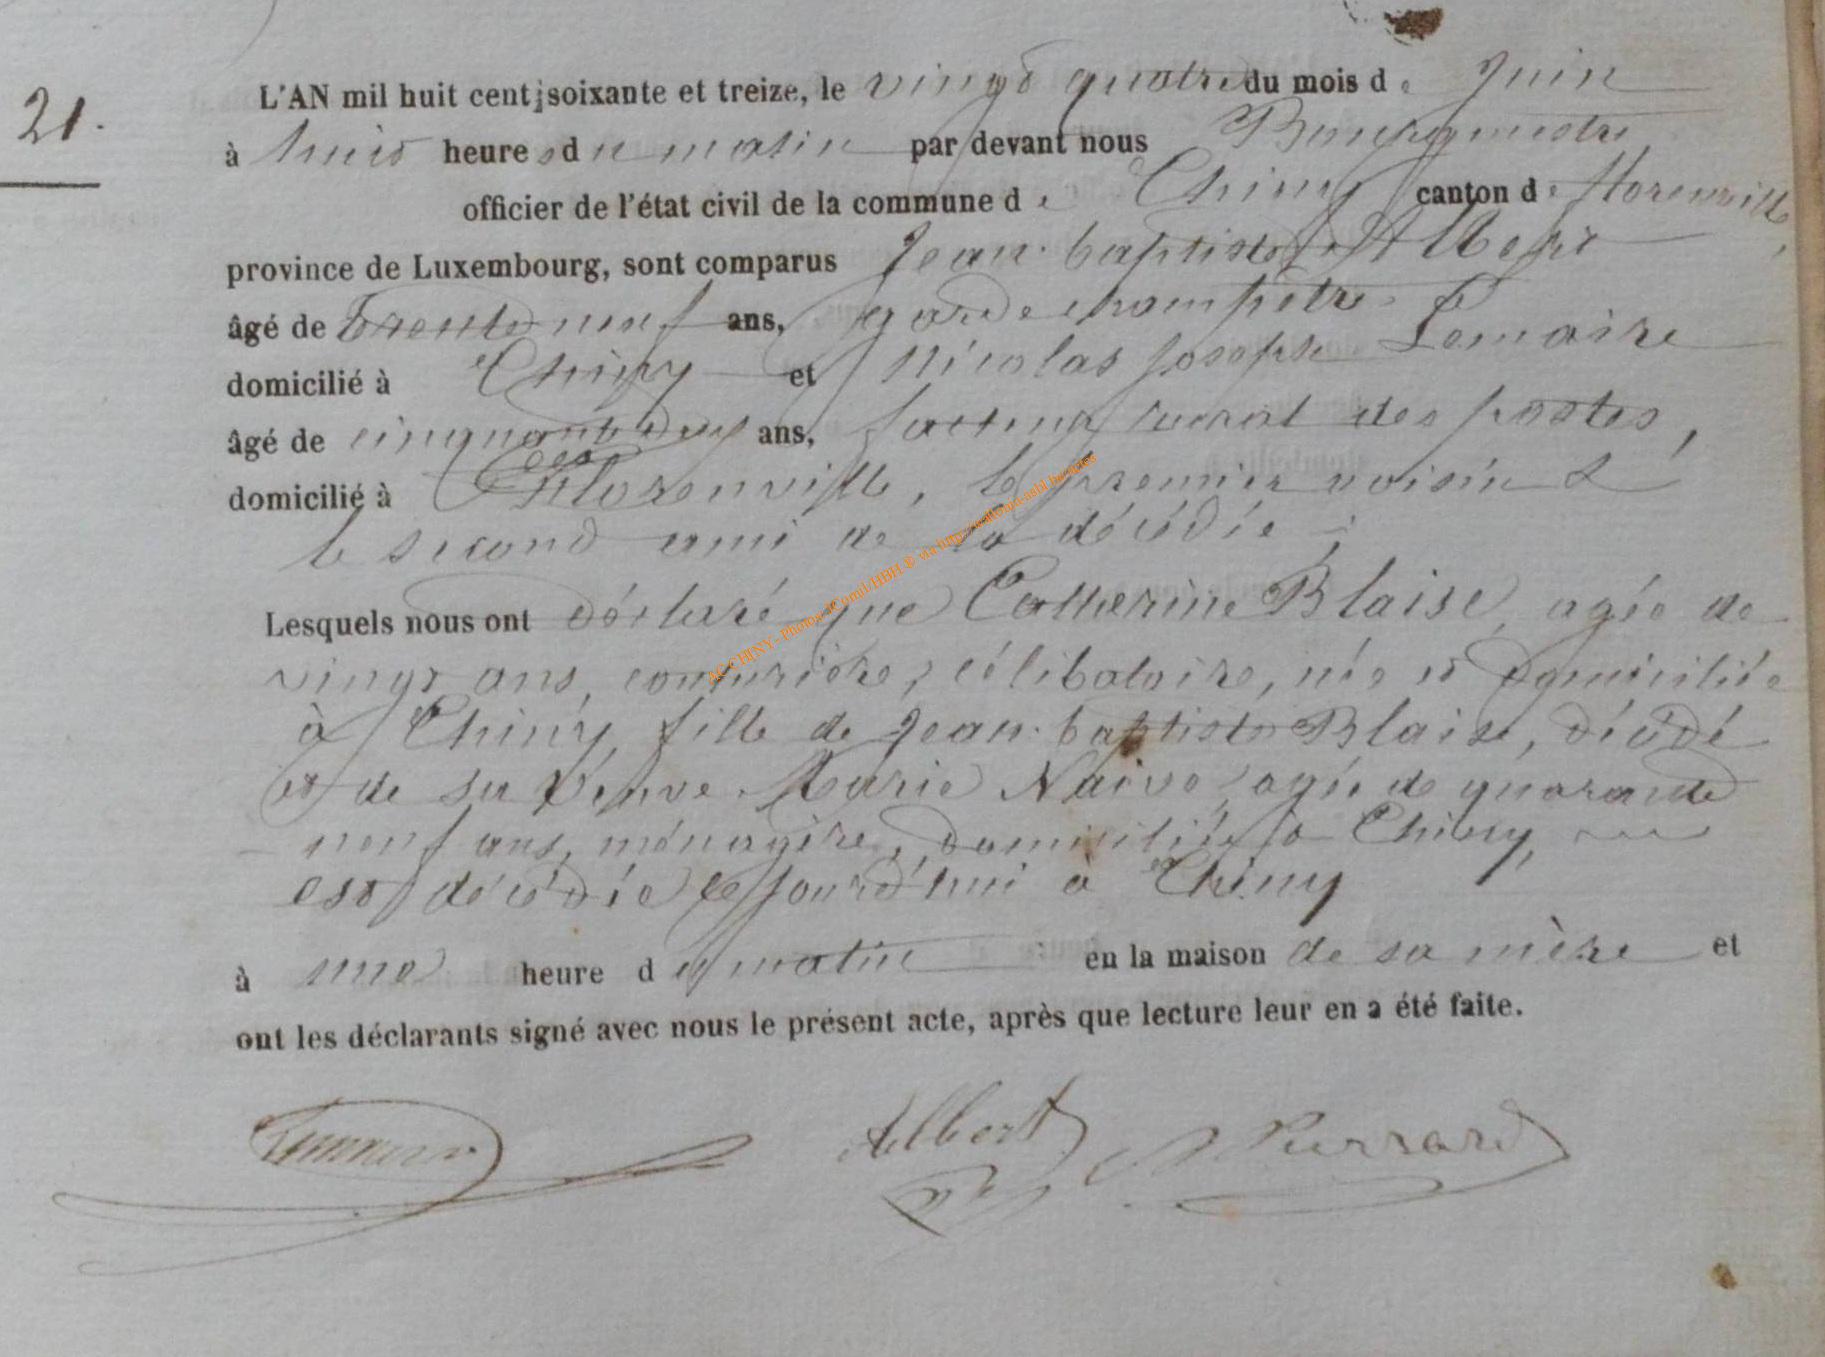 21.
L'AN mil huit cent soixante et treize, le vingt quatre du mois de Juin
à huit heures du matin par devant nous Bourgmestre
officier de l'état civil de la commune de Chiny canton de Florenville,
province de Luxembourg, sont comparus Jean-baptiste Albert
âgé de trente neuf ans, garde champêtre
domicilié à Chiny et Nicolas Joseph Lemaire
âgé de cinquante deux ans, facteur rural des postes,
domicilié à Florenville, le premier voisin &
le second ami de la décédée;
Lesquels nous ont déclaré que Catherine Blaise, agée de
vingt ans, couturière, célibataire, née et domiciliée
à Chiny, fille de Jean-baptiste Blaise, décédé
et de sa veuve Marie Naivo, agée de quarante
neuf ans, ménagère, domiciliée à Chiny,
est décédée ce jourd'hui à Chiny
à une heure du matin en la maison de sa mère et
ont les déclarants signé avec nous le présent acte, après que lecture leur en a été faite.
Albert Pierrard
AC CHINY - Photos